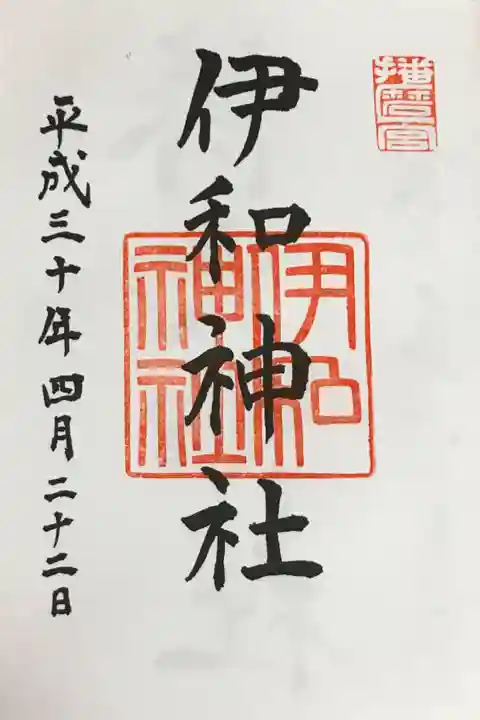 播磨宮
伊和神社
伊和
神社
平成三十年四月二十二日